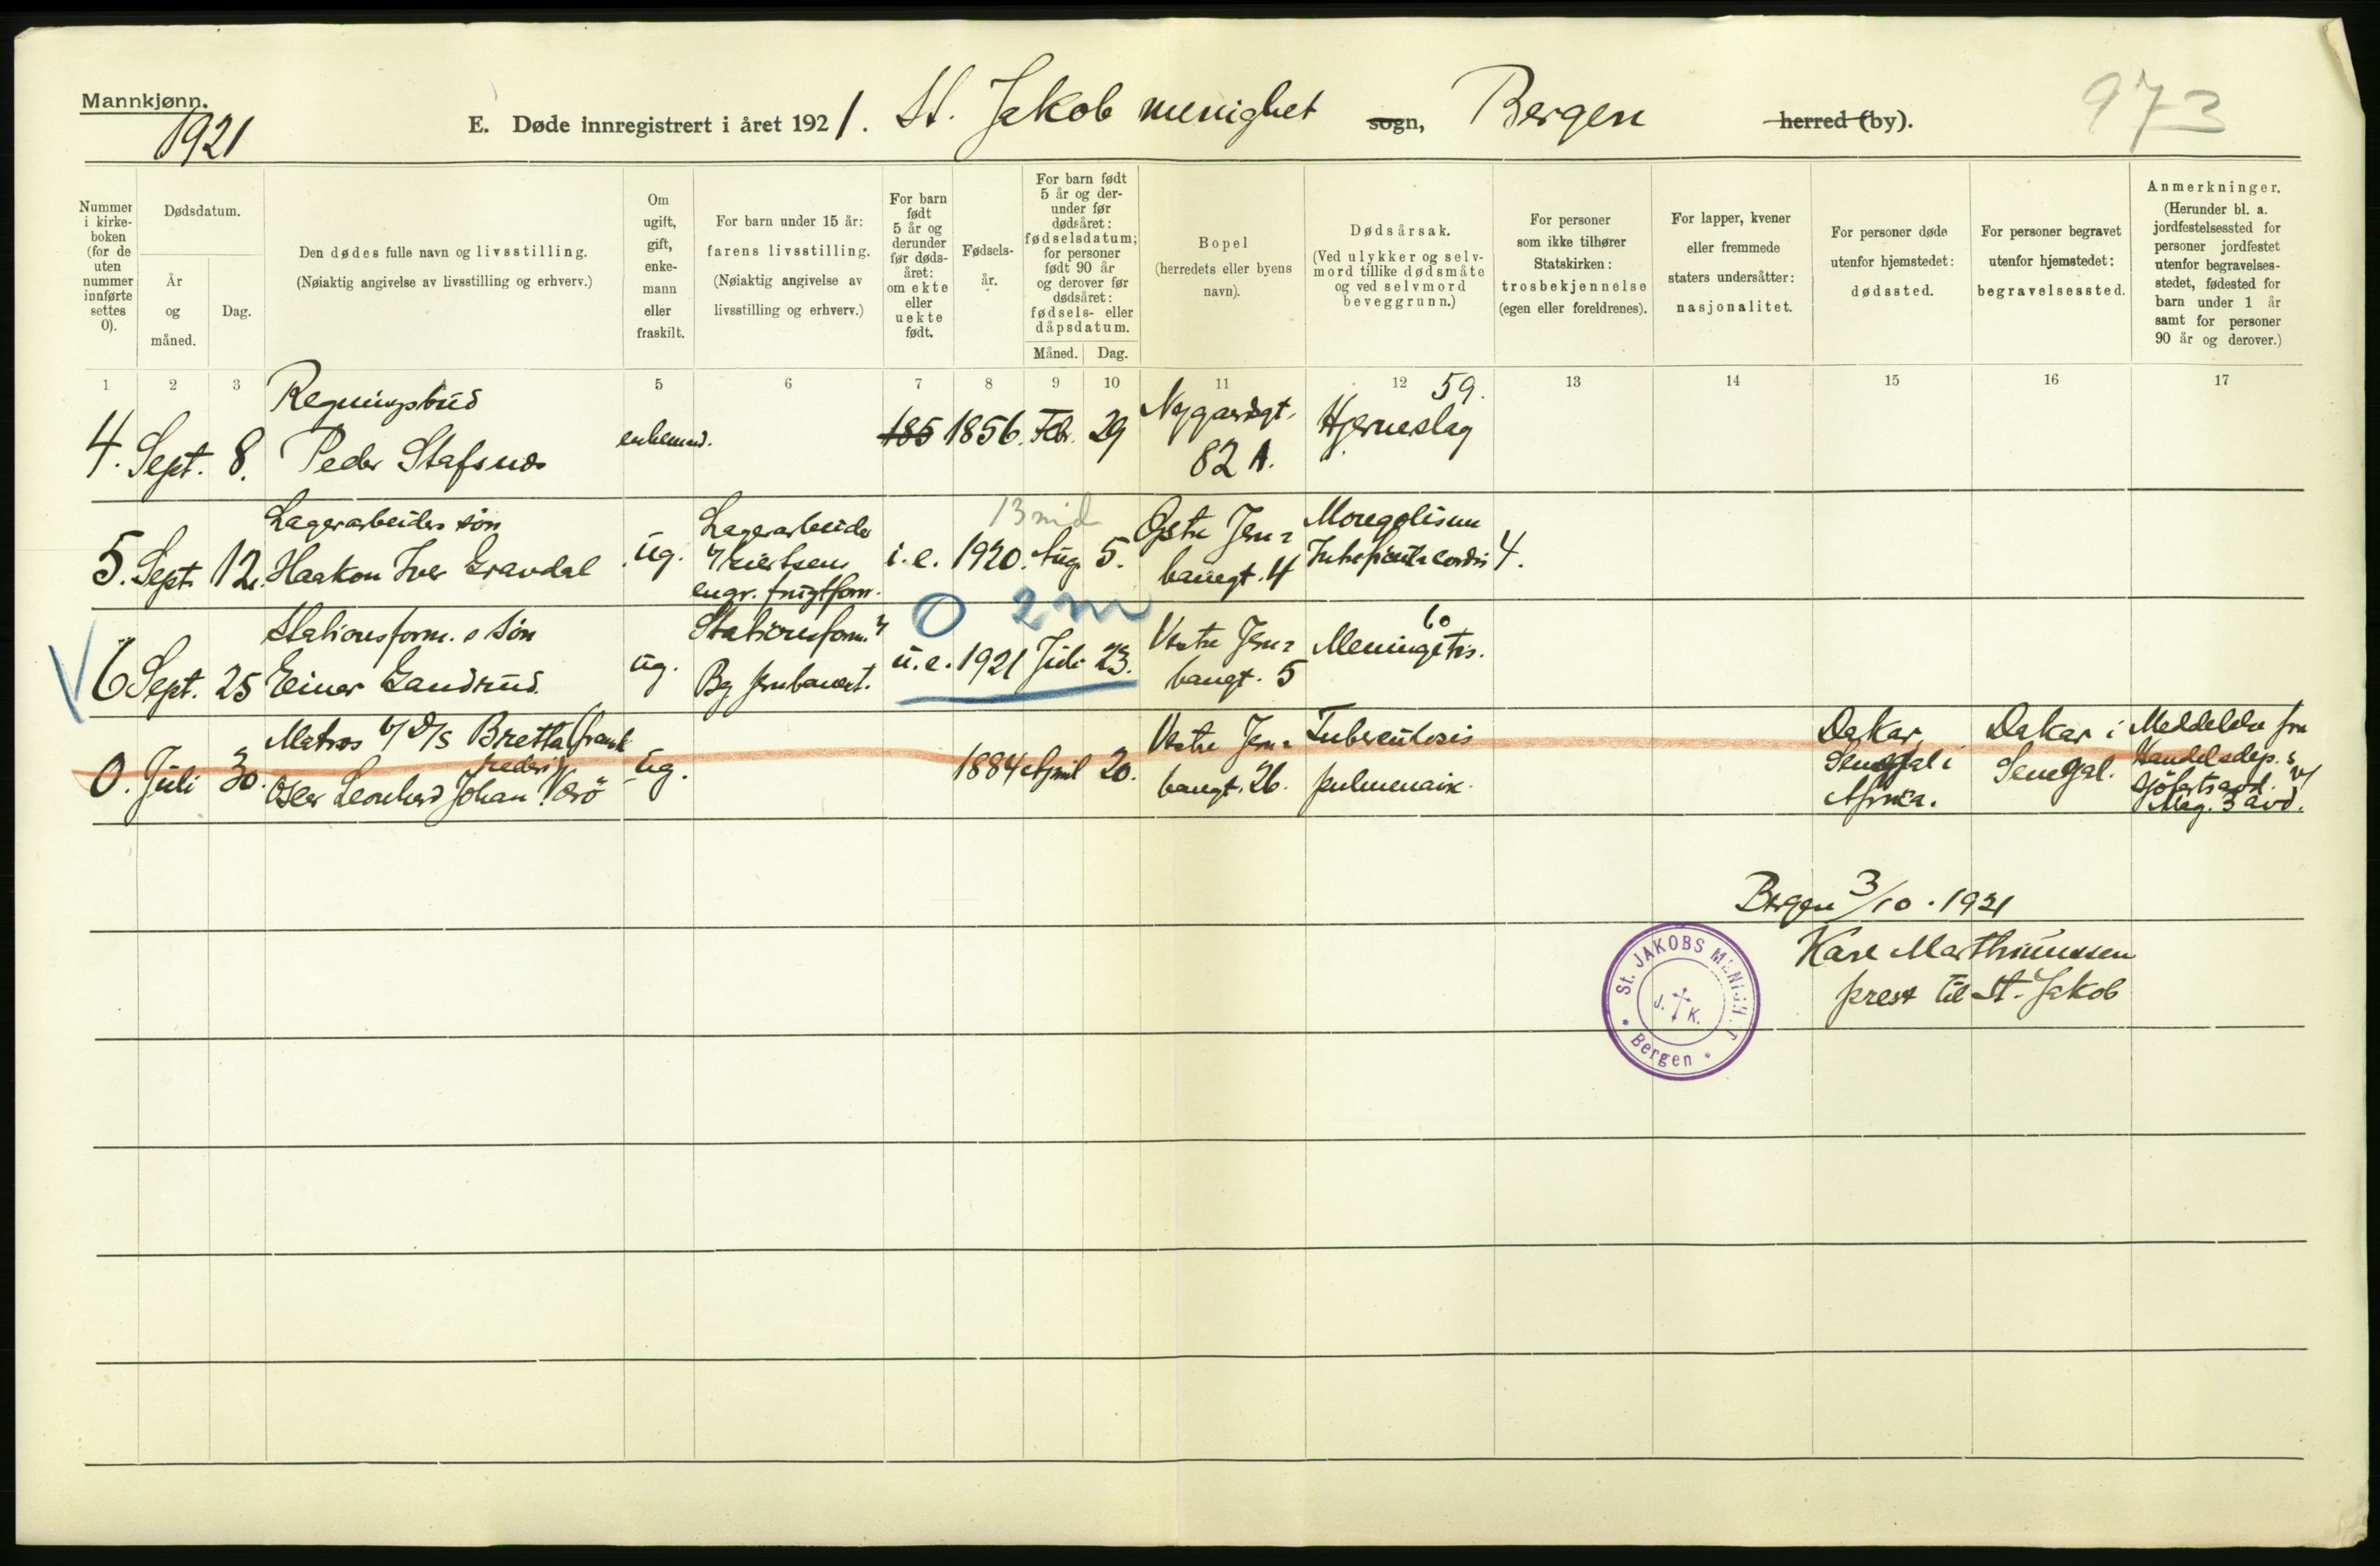 Mannkjønn.
1921
E. Døde innregistrert i året 1921. St. Jakob menighet sogn, Bergen herred (by).
973
Nummer i kirke-boken (for de uten nummer innførte settes 0).
Dødsdatum.
År og måned.
Dag.
Den dødes fulle navn og livsstilling.
(Nøiaktig angivelse av livsstilling og erhverv.)
Om ugift, gift, enke-mann eller fraskilt.
For barn under 15 år:
farens livsstilling.
(Nøiaktig angivelse av livsstilling og erhverv.)
For barn født 5 år og derunder før døds-året: om ekte eller uekte født.
Fødsels-år.
For barn født 5 år og der-under før dødsåret: fødselsdatum; for personer født 90 år og derover før dødsåret: fødsels- eller dåpsdatum.
Måned. Dag.
Bopel
(herredets eller byens navn).
Dødsårsak.
(Ved ulykker og selv-mord tillike dødsmåte og ved selvmord beveggrunn.)
For personer som ikke tilhører Statskirken: trosbekjennelse (egen eller foreldrenes).
For lapper, kvener eller fremmede staters undersåtter: nasjonalitet.
For personer døde utenfor hjemstedet: dødssted.
For personer begravet utenfor hjemstedet: begravelsessted.
Anmerkninger.
(Herunder bl. a. jordfestelsessted for personer jordfestet utenfor begravelses-stedet, fødested for barn under 1 år samt for personer 90 år og derover.)
1 2 3 5 6 7 8 9 10 11 12 13 14 15 16 17
4. Sept. 8. Regningsbud
Peder Stafsnes
enkem. 185 1856. Febr. 29 Nygaardsgt.
82 A. 59.
Hjerneslag
5. Sept. 12. Lagerarbeiders søn
Haakon Iver Gravdal
ug. Lagerarbeider
engr. frugtforr.
13 md
i.e. 1920. Aug. 5. Østre Jern=
banegt. 4
Mongolisme
cordis 4.
O 2 m
6 Sept. 25 Stationsform.s søn
Einar Sandrud.
ug. Stationsform. v/
Bg Jernbanest.
u.e. 1921 Juli 23. Vestre Jern=
bangt. 5
60
Meningitis.
0. Juli 30. Matros v/ D/S Bretta (fransk
rederi)
Oskar Leonhard Johan Værø
ug. 1884 April 20. Vestre Jern=
bangt. 26. Tuberculosis
pulmonair.
Dakar,
Senegal i
Afrika.
Dakar i
Senegal.
Meddelelse fra
Handelsdep.s
Sjøfartsavd. v/
Mag. 3 avd.
Bergen 3/10 · 1921
Karl Marthinussen
prest til St. Jakob
St. JAKOBS MENIGHET
J. K.
Bergen